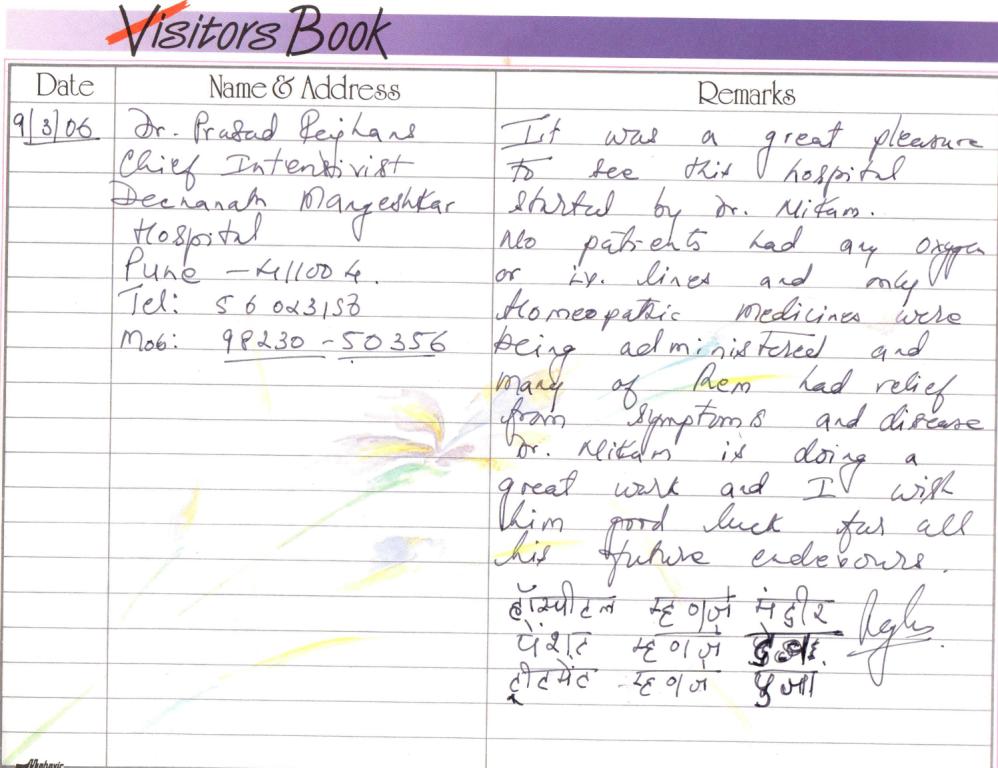 Visitors Book
Date
Name & Address
Remarks
9/3/06
Dr. Prasad Rajhans
Chief Intensivist
Deenanath Mangeshkar
Hospital
Pune – 411004.
Tel:
Mob: 98230 - 50356
It was a great pleasure
to see this hospital
started by Dr. Nikam.
No patients had any oxygen
or i.v. lines and only
Homeopathic medicines were
being administered and
many of them had relief
from symptoms and disease
Dr. Nikam is doing a
great work and I wish
him good luck for all
his future endevours.
हॉस्पीटल म्हणजे मंदीर
पेशंट म्हणजे
ट्रीटमेंट - म्हणजे पुजा